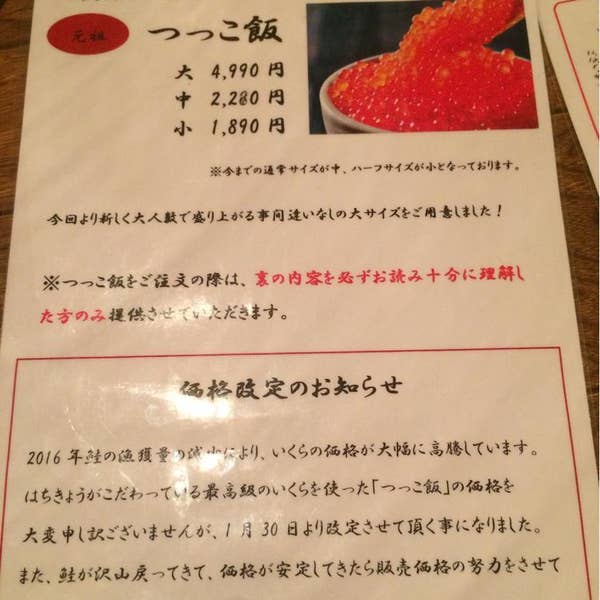 元祖 つっこ飯
大 4,990 円
中 2,280 円
小 1,890 円
※今までの通常サイズが中、ハーフサイズが小となっております。
今回より新しく大人数で盛り上がる事間違いなしの大サイズをご用意しました!
※つっこ飯をご注文の際は、裏の内容を必ずお読み十分に理解し
た方のみ提供させていただきます。
価格改定のお知らせ
2016 年鮭の漁獲量の減少により、いくらの価格が大幅に高騰しています。
はちきょうがこだわっている最高級のいくらを使った「つっこ飯」の価格を
大変申し訳ございませんが、1 月 30 日より改定させて頂く事になりました。
また、鮭が沢山戻ってきて、価格が安定してきたら販売価格の努力をさせて